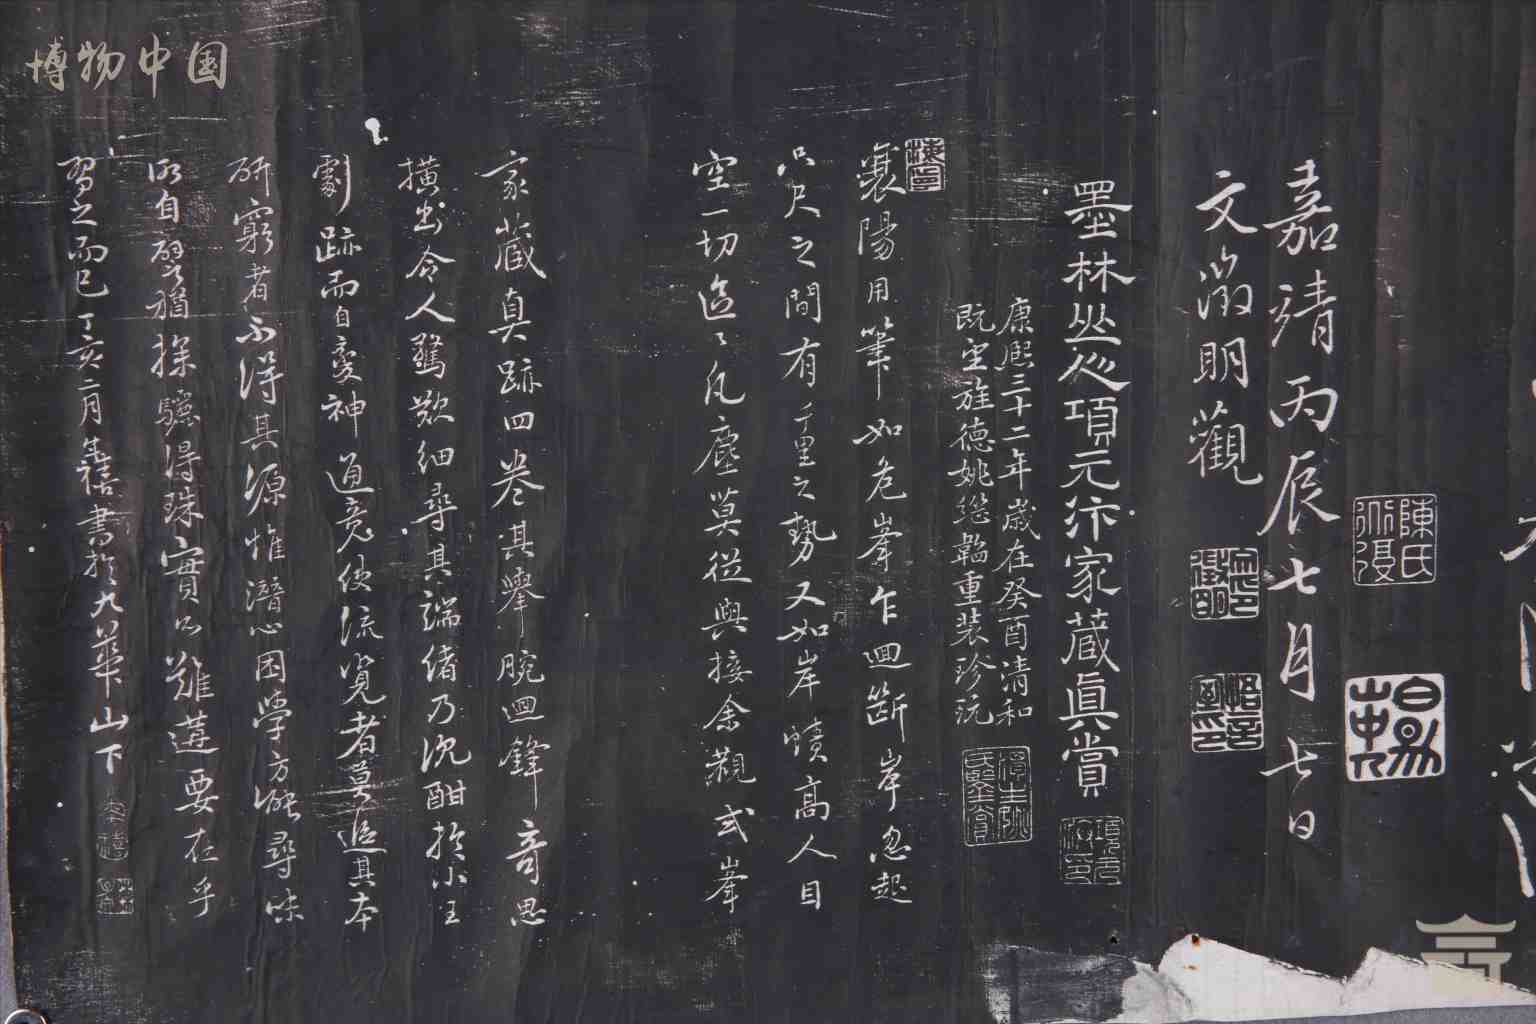 博物中国
嘉靖丙辰七月七日
文徵明觀
墨林山人項元汴家藏眞賞
康熙三十二年歲在癸酉清和
既望旌德姚繼韜重裝珍玩
襄陽用筆如危峯乍迴斷岸忽起
咫尺之間有千里之勢又如岸幘高人目
空一切迨之凡塵莫從與接余觀式峯
家藏真跡四卷其攣腕迴鋒奇思
橫出令人驚歎細尋其端緒乃沉酣於小王
劇跡而自變神通竟使流覽者莫追其本
研窮者不得其源惟潛心困學方能尋味
而自得猶探驪得珠實以難遘要在乎
習之而已丁亥二月禧書於九華山下
陳氏